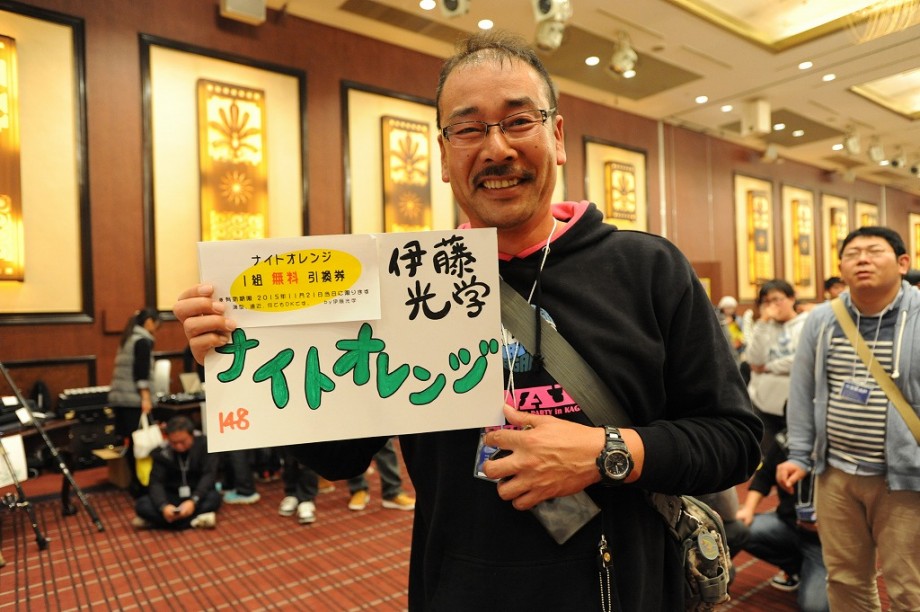 ナイトオレンジ
1組 無料 引換券
※有効期限 2015年11月21日当日に限ります
by伊藤光学
伊藤
光学
ナイトオレンジ
148
PARTY in KAGA